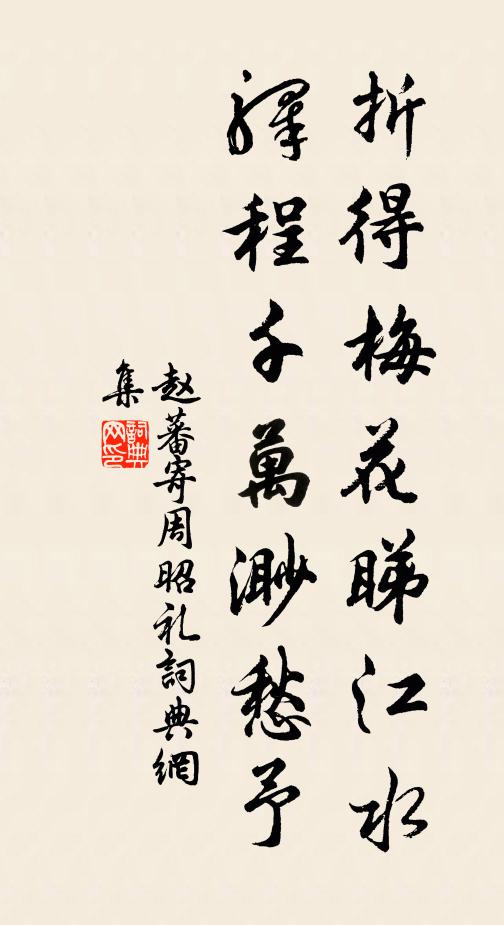 折得梅花睇江水
驛程千萬渺愁予
赵蕃寄周昭礼詞典網
集
詞典網印